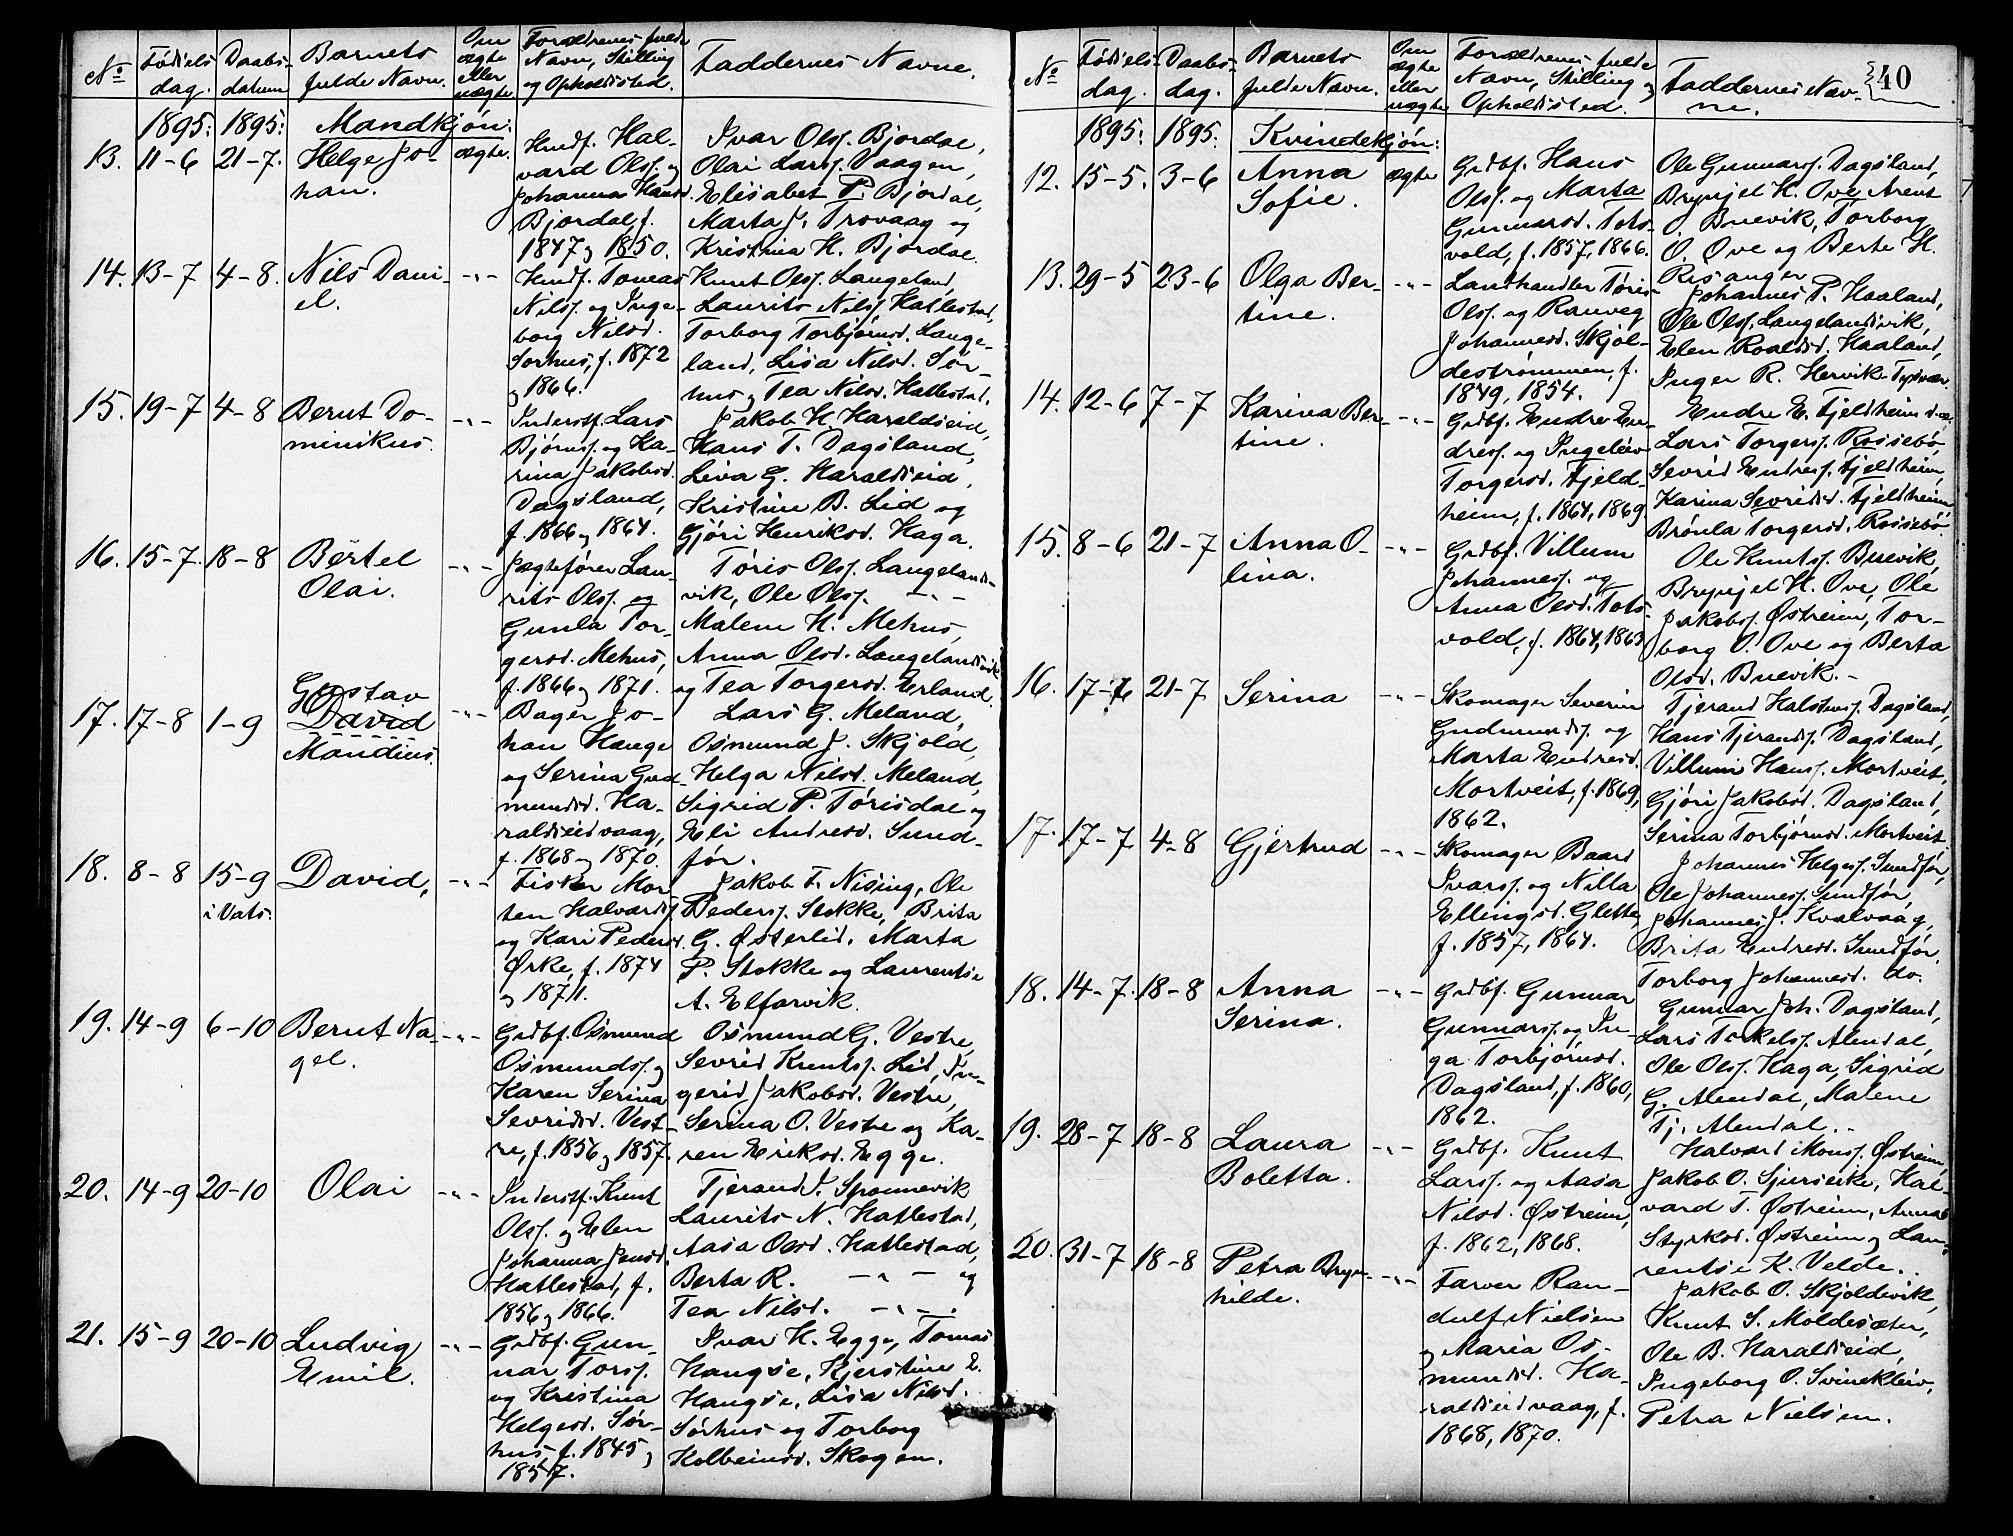 No Fødselsdag. Daabsdatum Barnets fulde Navn. Om ægte eller uægte Forældrenes fulde Navn, Stilling og Opholdssted. Faddernes Navne.
1895: 1895: Mandkjøn:
13. 11-6 21-7. Helge Jo-
han.
ægte.
Husmf. Hal-
vard Ols. og
Johanna Hansd.
Bjordal, f.
1847 og 1850.
Ivar Ols. Bjordal,
Olai Larss. Vaagen,
Elisabet P. Bjordal,
Marta J. Trovaag og
Kristina H. Bjordal.
14. 13-7 4-8. Nils Dani-
el.
-"-
Husmf. Tomas
Nilss. og Inge-
borg Nilsd.
Sørhus, f. 1872
og 1866.
Knut Ols. Langeland,
Laurits Nilss. Hatlestad,
Torborg Torbjørnsd. Lange-
land, Lisa Nilsd. Sør-
hus og Tea Nilsd. Hatlestad.
15. 19-7 4-8 Bernt Do-
minikus.
-"-
Inderstf. Lars
Bjørnss. og Ka-
rina Jakobsd.
Dagsland,
f. 1866 og 1864.
Jakob H. Haraldseid,
Hans T. Dagsland,
Liva G. Haraldseid,
Kristine B. Lid og
Gjøri Henriksd. Haga.
16. 15-7. 18-8 Bertel
Olai.
-"-
Jægtefører Lau-
rits Ols. og
Gunla Tor-
gersd. Mehus,
f. 1866 og 1871.
Tøris Ols. Langelands-
vik, Ole Ols. -"-
Malene H. Mehus,
Anna Olsd. Langelandsvik
og Tea Torgersd. Erland.
17. 17-8 1-9 Gustav
David
Mandius.
-"-
Bager Jo-
han Hauge
og Serina Gud-
mundsd. Ha-
raldseidvaag,
f. 1868 og 1870.
Lars G. Meland,
Osmund J. Skjold,
Helga Nilsd. Meland,
Sigrid P. Tørisdal og
Eli Andresd. Sund-
før.
18. 8-8 15-9
i Vats.
David,
-"-
Fisker Mor-
ten Halvards.
og Kari Pedersd.
Ørke, f. 1874
og 1871.
Jakob F. Nising, Ole
Peders. Stokke, Brita
G. Østerlid, Marta
P. Stokke og Laurentse
A. Elfarvik.
19. 14-9 6-10 Bernt Na-
gel.
-"-
Grdbf. Osmund
Osmunds. og
Karen Serina
Sevridsd. Vest-
re, f. 1856 og 1857.
Osmund G. Vestre,
Sevrid Knuts. Lid, In-
gerid Jakobsd. Vestre,
Serina O. Vestre og Ka-
ren Eriksd. Egge.
20. 14-9 20-10 Olai
-"-
Inderstf. Knut
Ols. og Elen
Johanna Jensd.
Hatlestad, f.
1856 og 1866.
Tjerand J. Sponnevik
Laurits N. Hatlestad,
Aasa Olsd. Hatlestad,
Berta R. -"- og
Tea Nilsd. -"-.
21. 15-9 20-10 Ludvig
Emil.
-"-
Grdbf. Gun-
nar Torss.
og Kristina
Helgesd. Sør-
hus, f. 1845 og
1857.
Ivar H. Egge, Tomas
Haugse, Kjerstine E.
Haugse, Lisa Nilsd.
Sørhus og Torborg
Kolbeinsd. Skogen.
40
No Fødselsdag. Daabsdag. Barnets fulde Navn. Om ægte eller uægte Forældrenes fulde Navn, Stilling og Opholdssted. Faddernes Navne.
1895: 1895: Kvindekjøn:
12. 15-5. 3-6 Anna
Sofie.
ægte
Grdbf. Hans
Ols. og Marta
Gunnarsd. Tots-
vold, f. 1857, 1866.
Ole Gunnars. Dagsland,
Brynjel H. Ove, Arent
O. Buevik, Torborg
O. Ove og Berte H.
Risanger.
13. 29-5 23-6 Olga Ber-
tine.
-"-
Landhandler Tøris
Ols. og Ranveg
Johannesd. Skjol-
destrømmen, f.
1849, 1854.
Johannes P. Haaland,
Ole Ols. Langelandsvik,
Elen Roaldsd. Haaland,
Inger R. Hervik Tysvær.
14. 12-6 7-7 Karina Ber-
tine.
-"-
Grdbf. Endre En-
dress. og Ingeleiv
Torgersd. Fjeld-
heim, f. 1864, 1869.
Endre E. Fjeldheim
Lars Torgers. Rossebø,
Sevrid Endress. Fjeldheim,
Karina Sevridsd. Fjeldheim
Brønla Torgersd. Rossebø.
15. 8-6 21-7 Anna O-
lina.
-"-
Grdbf. Villum
Johanness. og
Anna Olsd. Tots-
vold, f. 1864, 1863.
Ole Knuts. Buevik,
Brynjel H. Ove, Ole
Jakobs. Østreim, Tor-
borg O. Ove og Berta
Olsd. Buevik.-
16. 17-6 21-7 Serina
-"-
Skomager Severin
Gudmunds. og
Marta Endresd.
Mortveit, f. 1869,
1862.
Tjerand Halstens. Dagsland,
Hans Tjerands. Dagsland,
Villum Hans. Mortveit,
Gjøri Jakobsd. Dagsland,
Serina Torbjørnsd. Mortveit.
17. 17-7 4-8 Gjertrud
-"-
Skomager Baard
Ivars. og Nilla
Ellingsd. Glette,
f. 1857, 1864.
Johannes Helges. Sundfør,
Ole Johanness. Sundfør,
Johannes J. Kvalvaag,
Brita Endresd. Sundfør,
Torborg Johannesd. do.
18. 14-7. 18-8 Anna
Serina.
-"-
Grdbf. Gunnar
Gunnars. og In-
ga Torbjørnsd.
Dagsland, f. 1860,
1862.
Gunnar Joh. Dagsland,
Lars Torkels. Alendal,
Ole Ols. Haga, Sigrid
G. Alendal, Malene
Tj. Alendal.-
19. 28-7 18-8 Laura
Boletta.
-"-
Grdbf. Knut
Larss. og Aasa
Nilsd. Østreim,
f. 1862, 1868.
Halvard Mons. Østreim,
Jakob O. Sjurseike, Hal-
vard T. Østreim, Anna
Styrksd. Østreim og Lau-
rentse K. Velde.
20. 31-7 18-8 Petra Bryn-
hilde.
-"-
Farver Ran-
dulf Nielsen
og Maria Os-
mundsd. Ha-
raldseidvaag, f.
1868, 1870.
Jakob O. Skjoldevik,
Knut S. Moldesæter,
Ole B. Haraldseid,
Ingeborg O. Svinekleiv,
Petra Nielsen.